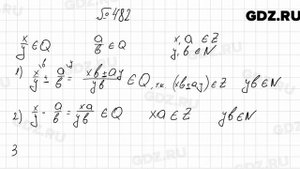 GDZ.RU
№482
x/y ∈ Q a/b ∈ Q x, a ∈ Z
y, b ∈ N
1) x/y ± a/b = (xb ± ay)/yb ∈ Q, т.к. (xb ± ay) ∈ Z yb ∈ N
2) x/y · a/b = xa/yb ∈ Q xa ∈ Z yb ∈ N
3
GDZ.RU